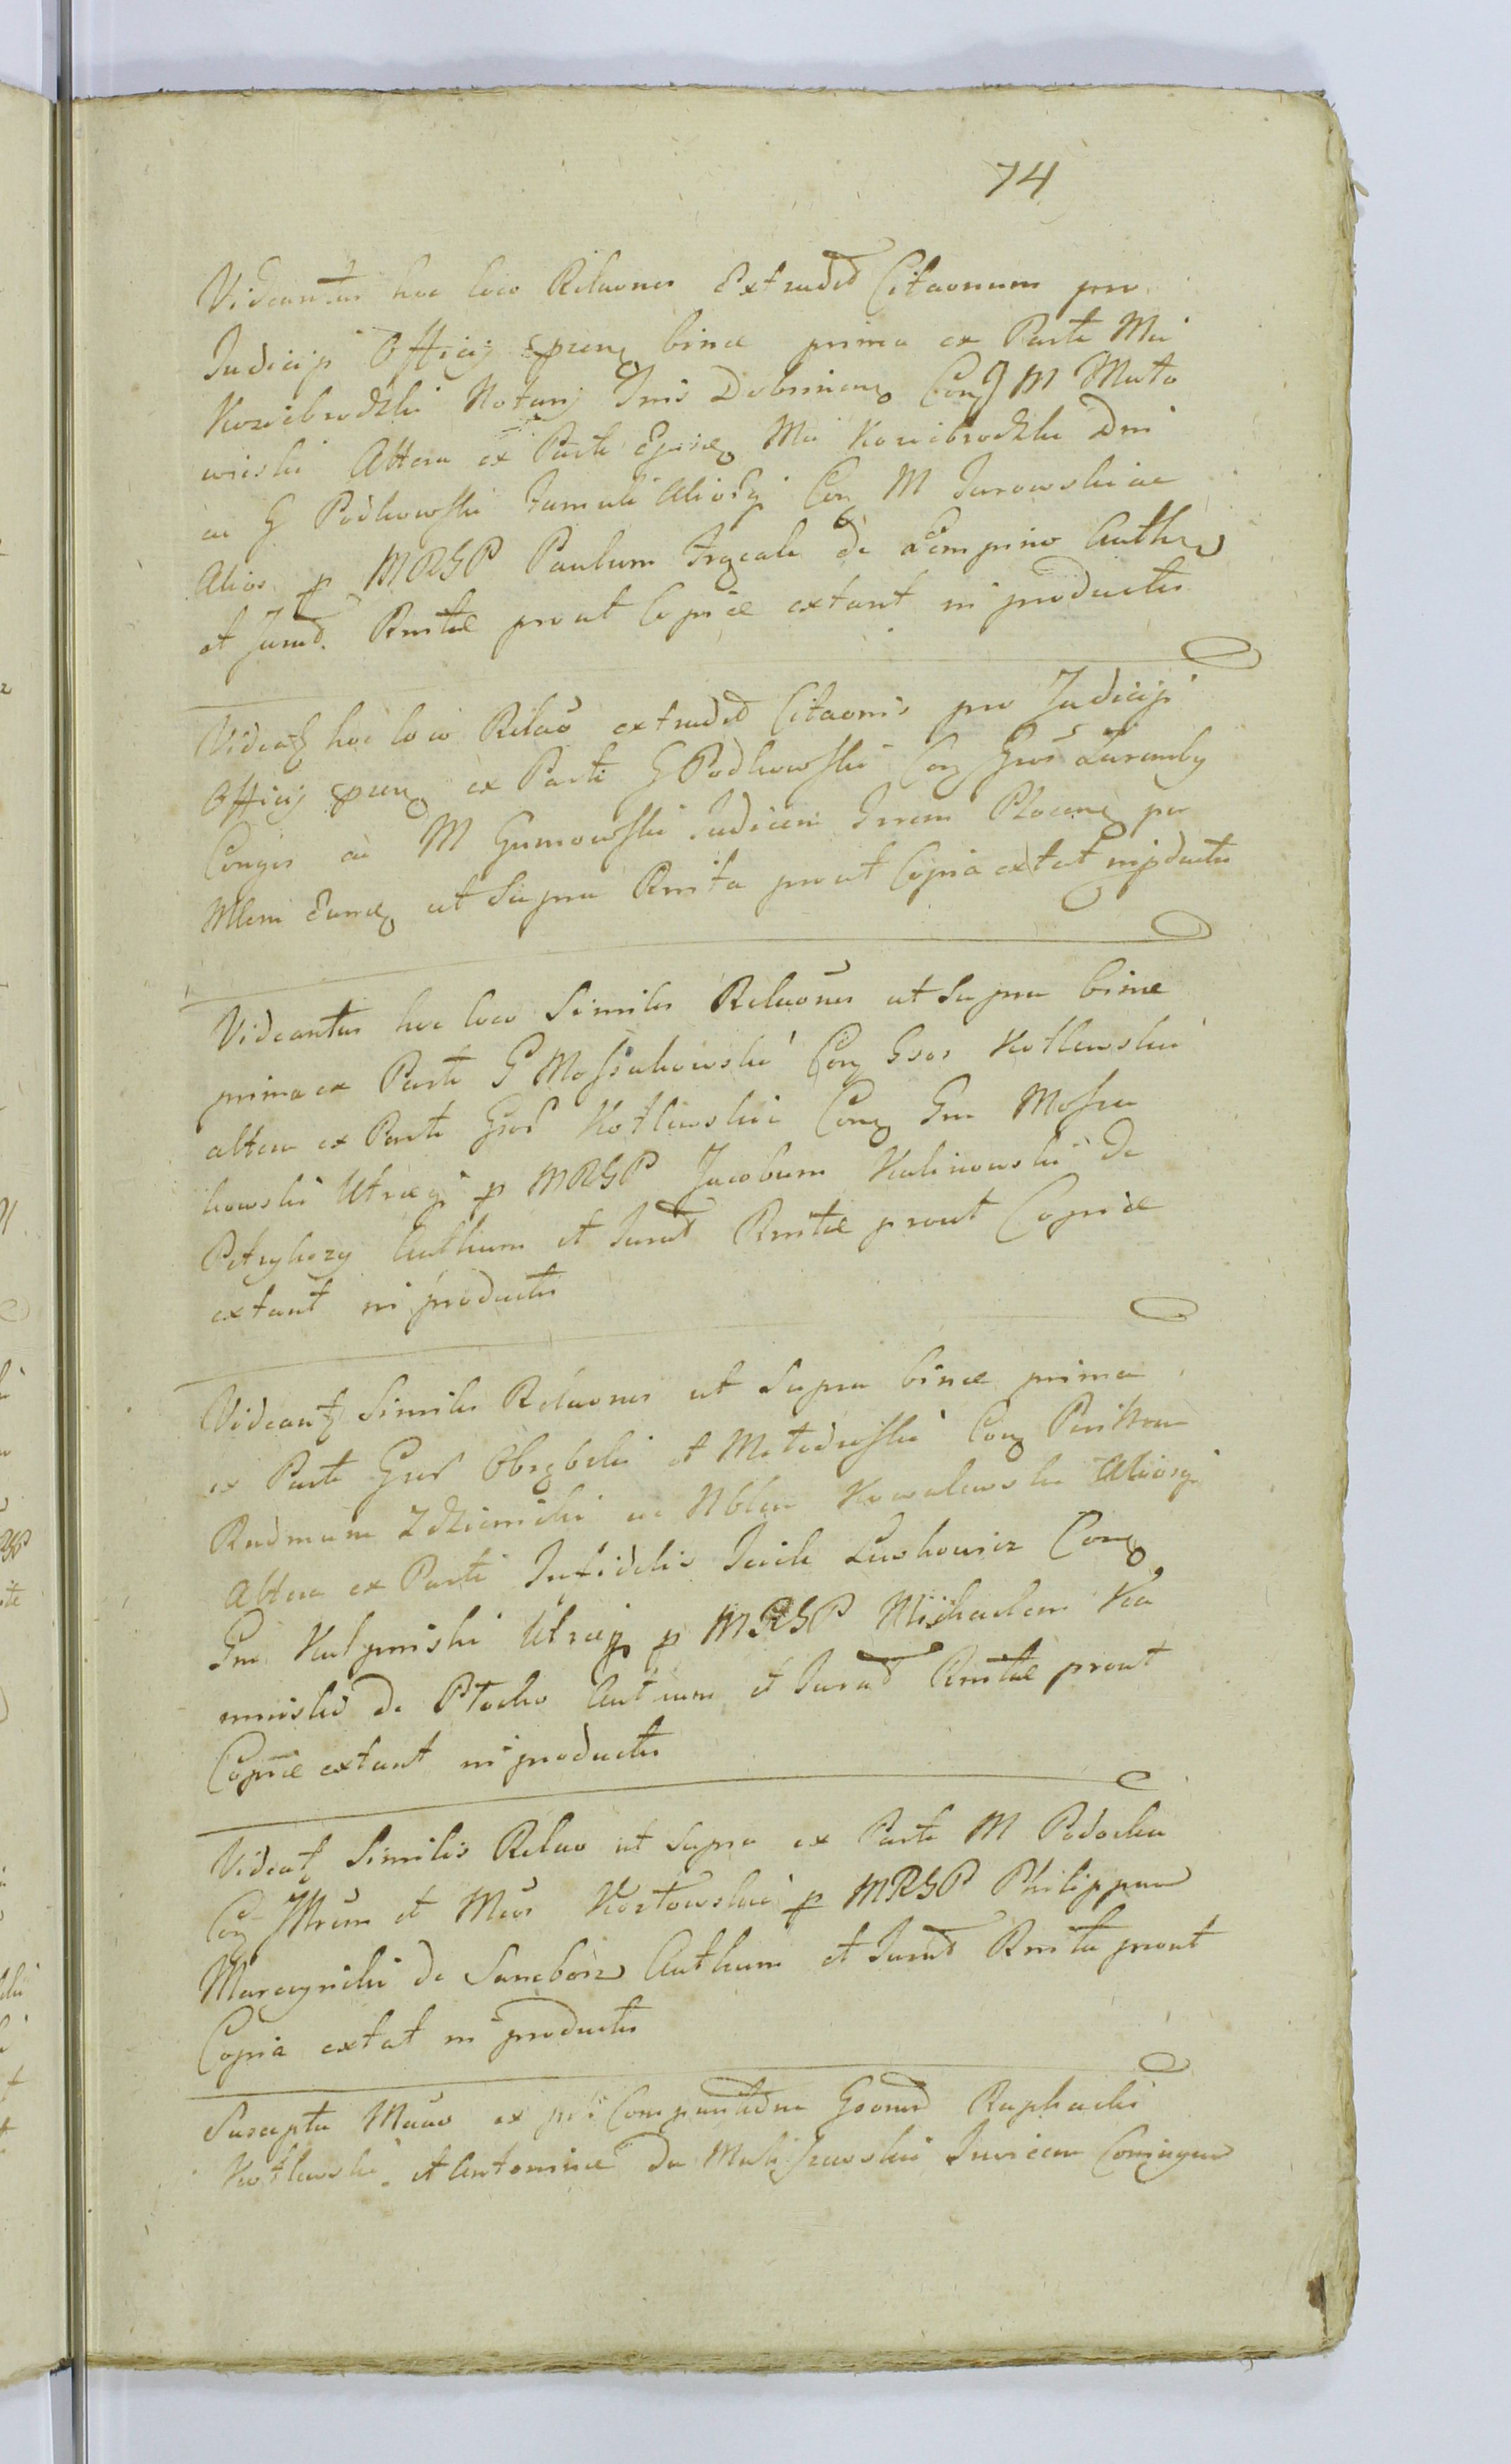 74
Videantur hoc loco Relaones Extradd Citaonum pro
Judicijs Officij binæ prima ex Parte Mci
Koziebrodzki Notarij Tris Dobrinen Con M Mato
wieski Altera ex Parte Ejusd Mci Koziebrodzki Dni
ac G Podkowski famuli Aliorq Con M Jurowski ac
Alios p MRGP Paulum de Lempino Auth
et Jurad. Rnitæ prout Copiæ extant in productis
Videatq hoc loco Relao extradd Citaonis pro Judicijs
Officij ex Parte G Podkowski Con Gsos Zaremby
Conges ac M Gumowski Judicem Trem Plocen per
Mlem Eund ut Supra Rnita prout Copia extat in pductis
Videantur hoc loco Similes Relaones ut Supra binæ
prima ex Parte G Mossakowski Con Gsos Kotlewskie
altera ex Parte Gsor Kotlewskie Con Gm Mossa
kowski Utræq p MRGP Jacobum Kalinowski de
Petrykozy Authum et Jurad Rnitæ prout Copiæ
extant in productis
Videantq Similes Relaones ut Supra binæ prima
ex Parte Gsor Obrębski et Con
Rndmum Zdziemicki ac Nblem Kowalewski Aliosq
Altera ex Parte Infidelis Lewkowicz Con
Gm Kulpinski Utræq p MRGP Michaelem Ka
minski de Płocko Autum et Jurad Rnitæ prout
Copiæ extant in productis
Videatq Similis Relao ut Supra ex Parte M Podoska
Con Mcum et Mcos Kozłowskie p MRGP Philippum
de Authum et Jurad Rnita prout
Copia extat in productis
Suscepta ex Gsorum Raphaelis
Kotlewski et Antoninæ de Invicem Conjugum